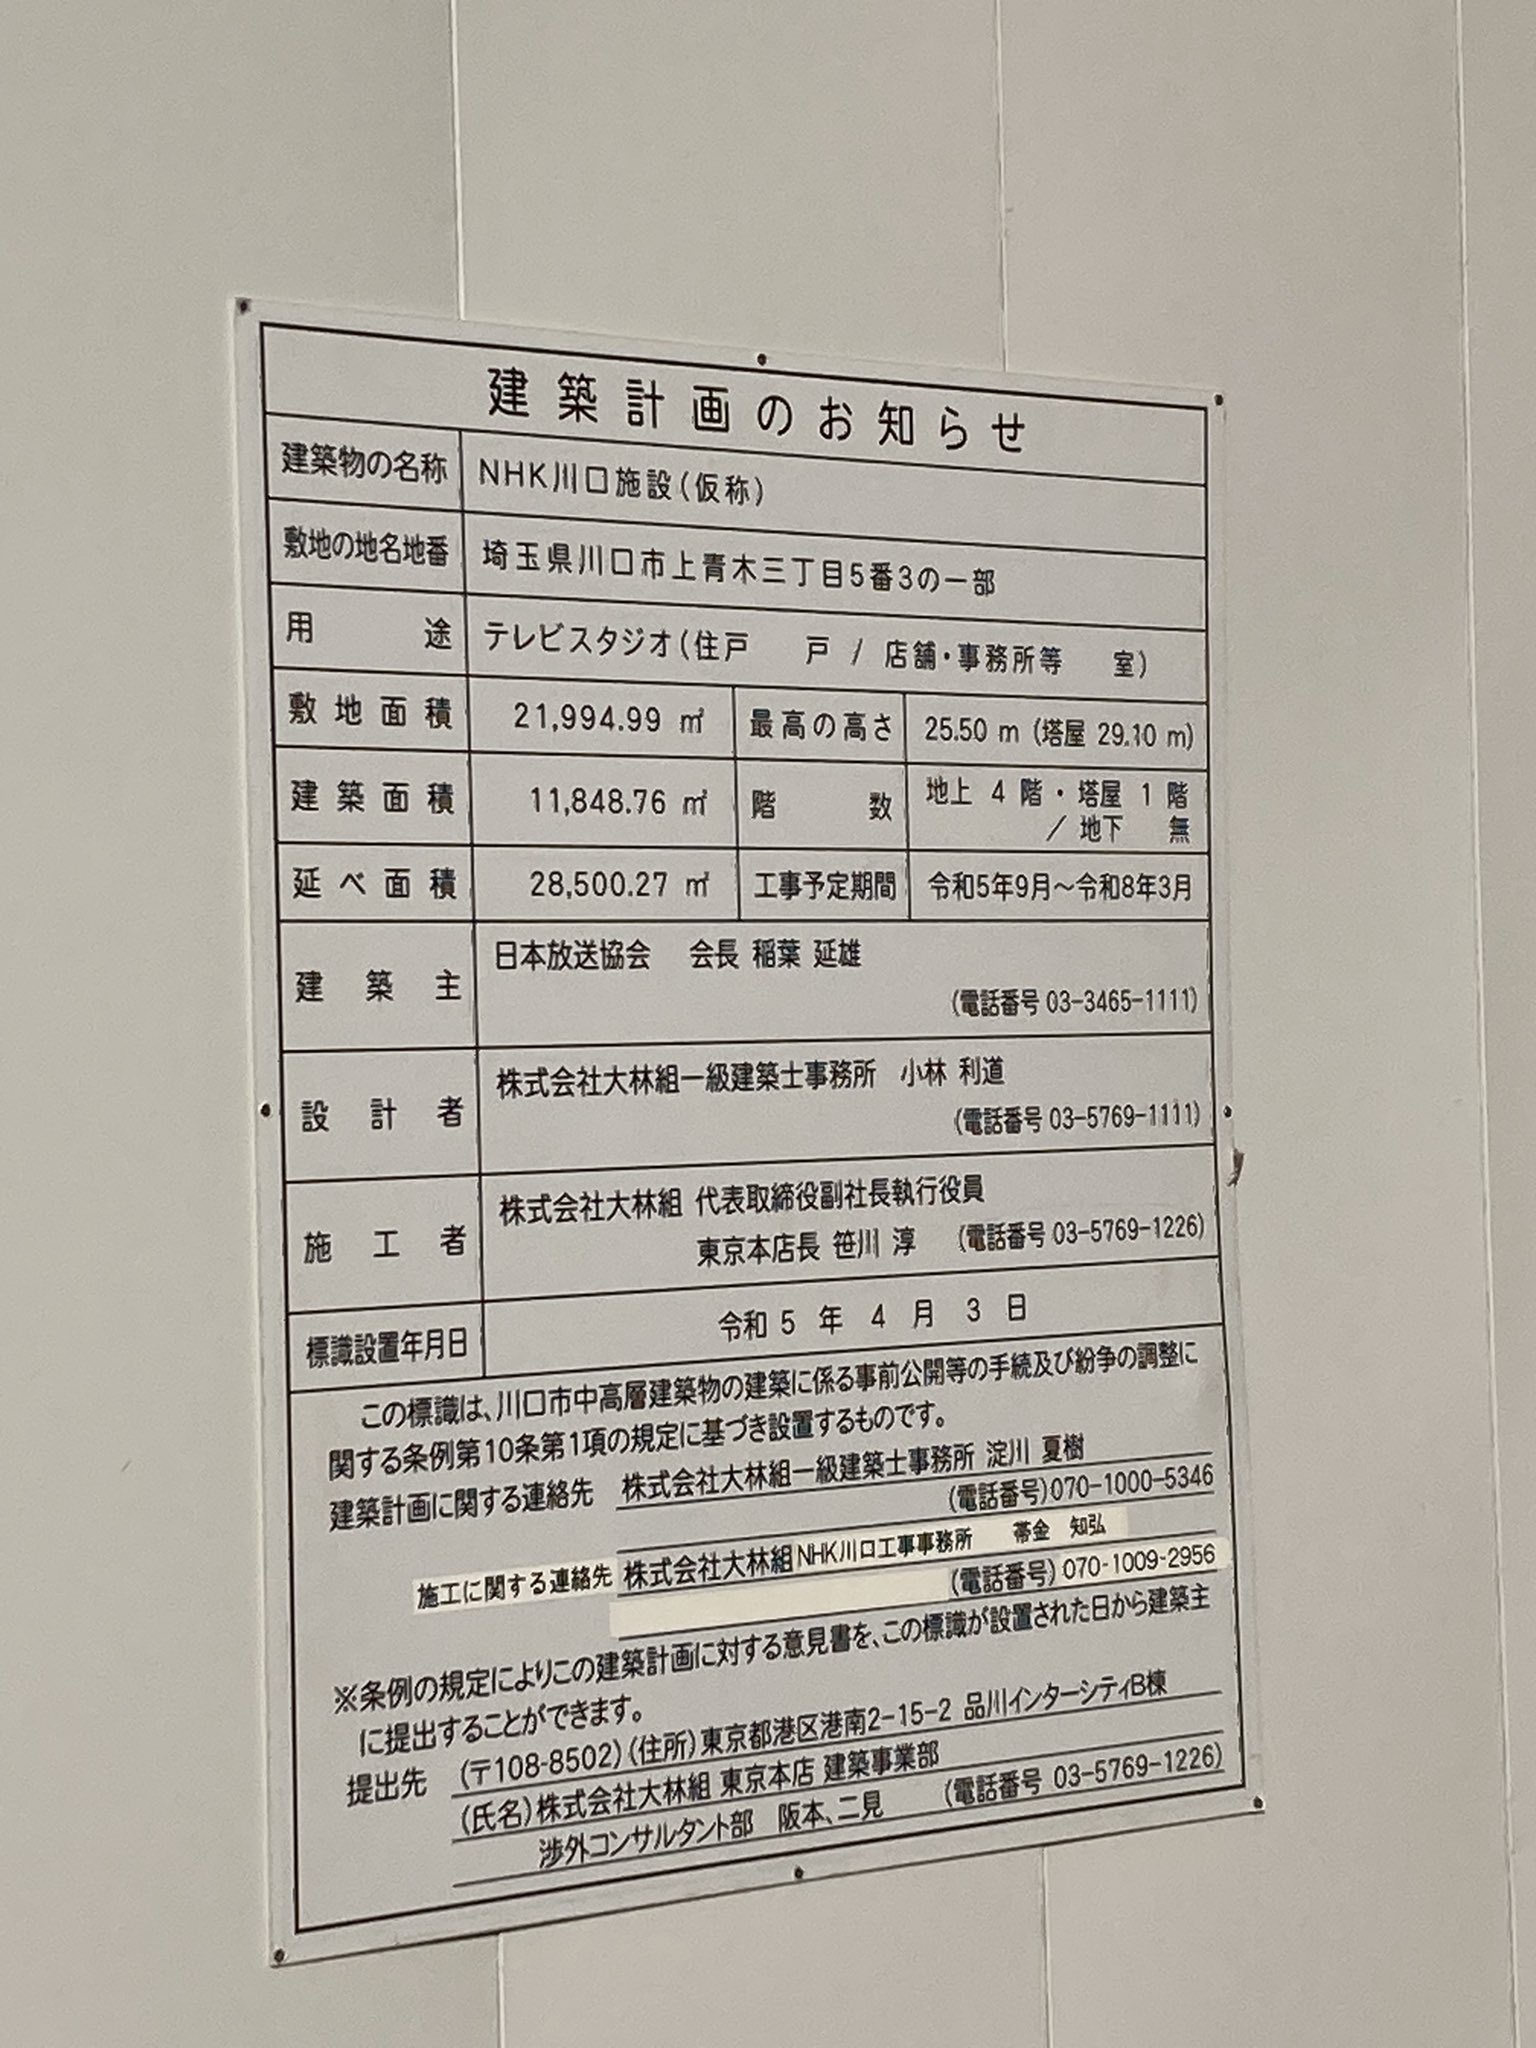 建築計画のお知らせ
建築物の名称 NHK川口施設(仮称)
敷地の地名地番 埼玉県川口市上青木三丁目5番3の一部
用途 テレビスタジオ(住戸 戸 / 店舗・事務所等 室)
敷地面積 21,994.99 ㎡ 最高の高さ 25.50 m (塔屋 29.10 m)
建築面積 11,848.76 ㎡ 階数 地上 4 階・塔屋 1 階
/ 地下 無
延べ面積 28,500.27 ㎡ 工事予定期間 令和5年9月～令和8年3月
建築主 日本放送協会 会長 稲葉 延雄
(電話番号 03-3465-1111)
設計者 株式会社大林組一級建築士事務所 小林 利道
(電話番号 03-5769-1111)
施工者 株式会社大林組 代表取締役副社長執行役員
東京本店長 笹川 淳 (電話番号 03-5769-1226)
標識設置年月日 令和 5 年 4 月 3 日
この標識は、川口市中高層建築物の建築に係る事前公開等の手続及び紛争の調整に
関する条例第10条第1項の規定に基づき設置するものです。
建築計画に関する連絡先 株式会社大林組一級建築士事務所 淀川 夏樹
(電話番号)070-1000-5346
施工に関する連絡先 株式会社大林組NHK川口工事事務所 帯金 知弘
(電話番号) 070-1009-2956
※条例の規定によりこの建築計画に対する意見書を、この標識が設置された日から建築主
に提出することができます。
提出先 (〒108-8502) (住所) 東京都港区港南2-15-2 品川インターシティB棟
(氏名) 株式会社大林組 東京本店 建築事業部
渉外コンサルタント部 阪本、二見 (電話番号 03-5769-1226)